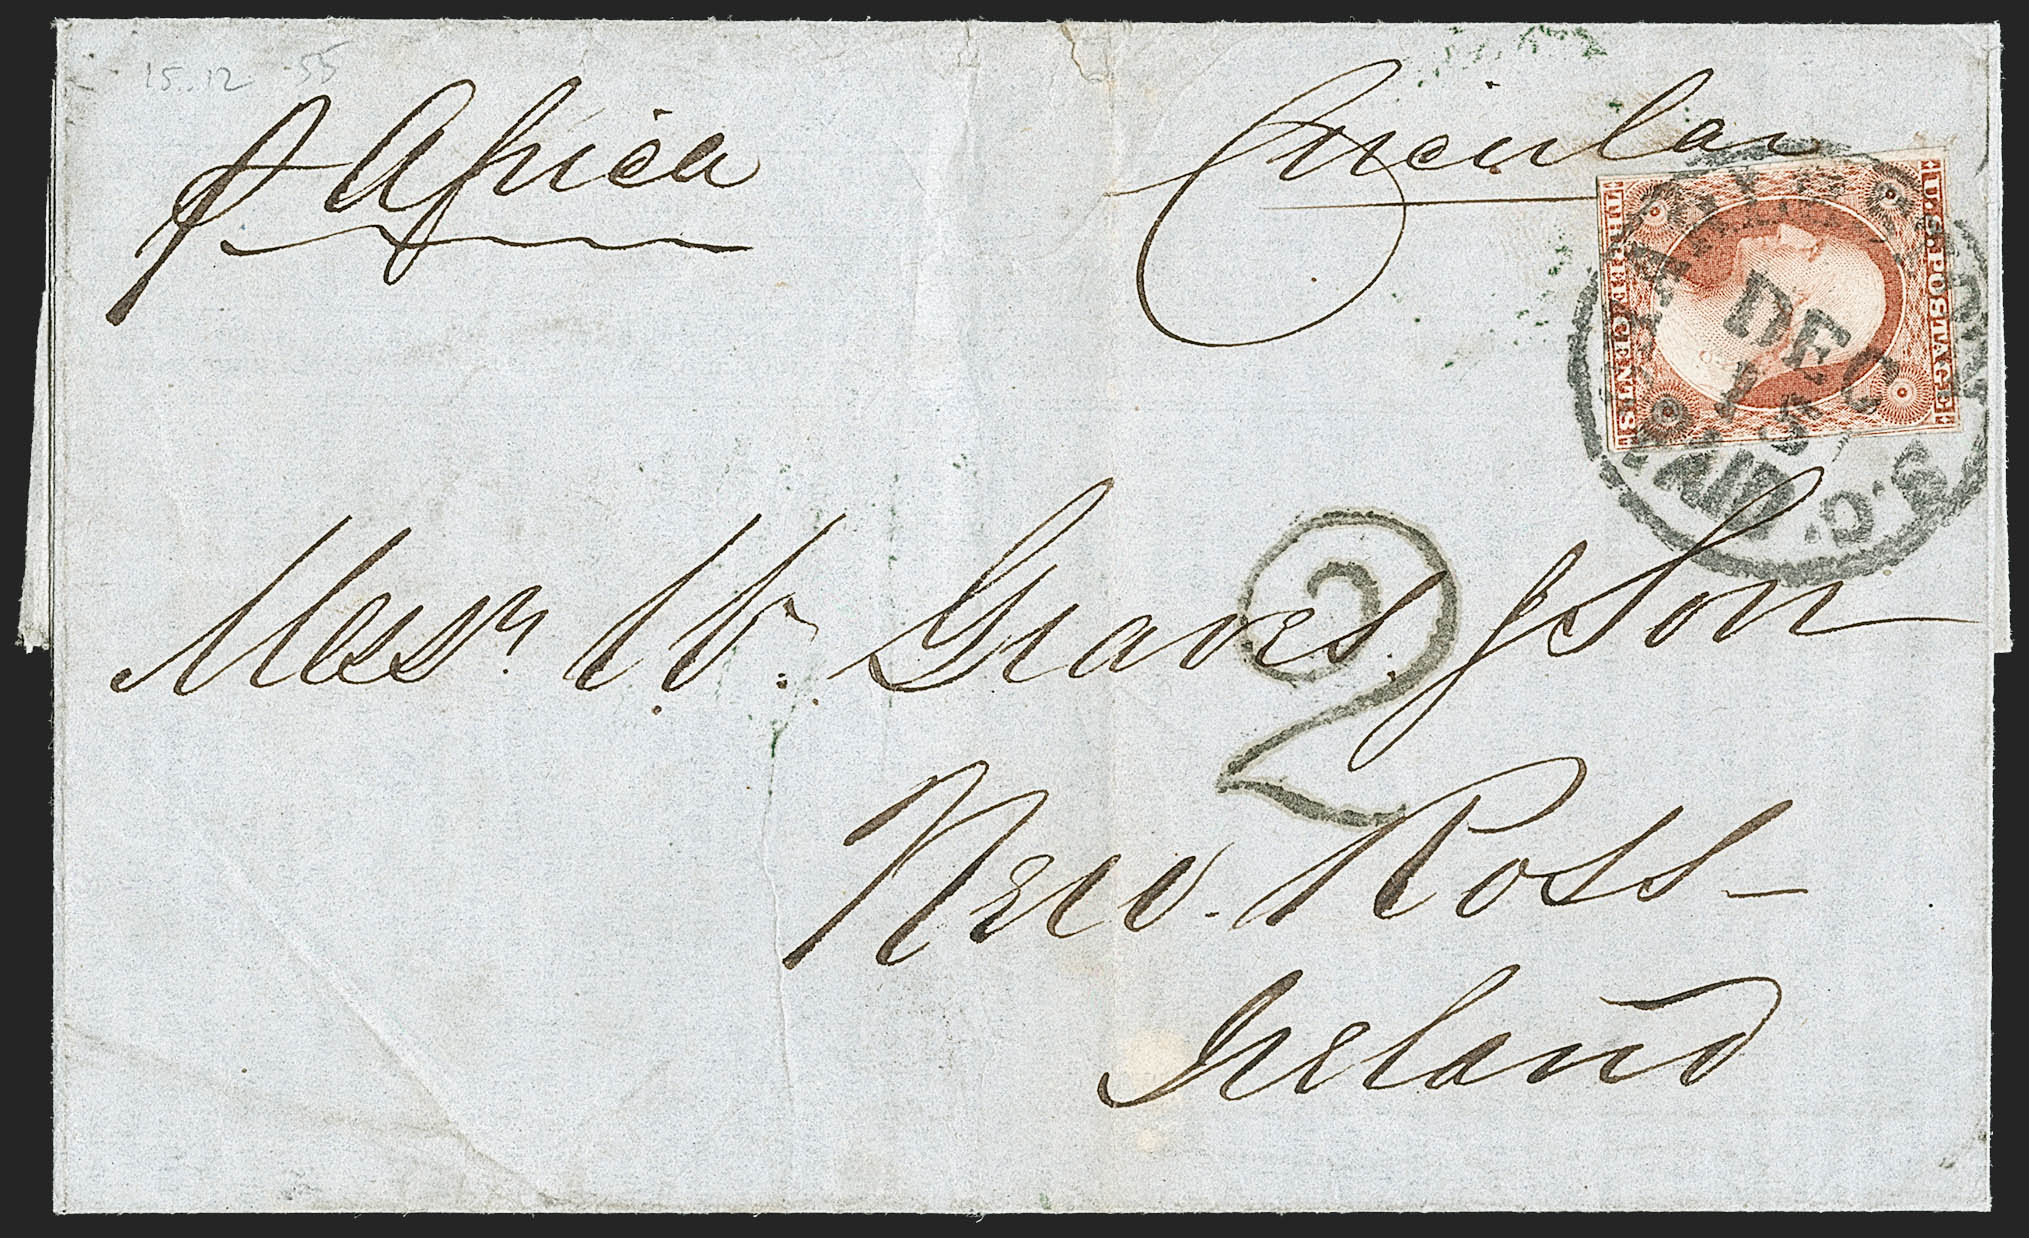 15..12 .55
p Africa
Circular
U.S. POSTAGE
THREE CENTS
DEC
15
PAID
S.C.
2
Messrs. W. Graves & Son
New. Ross
Ireland